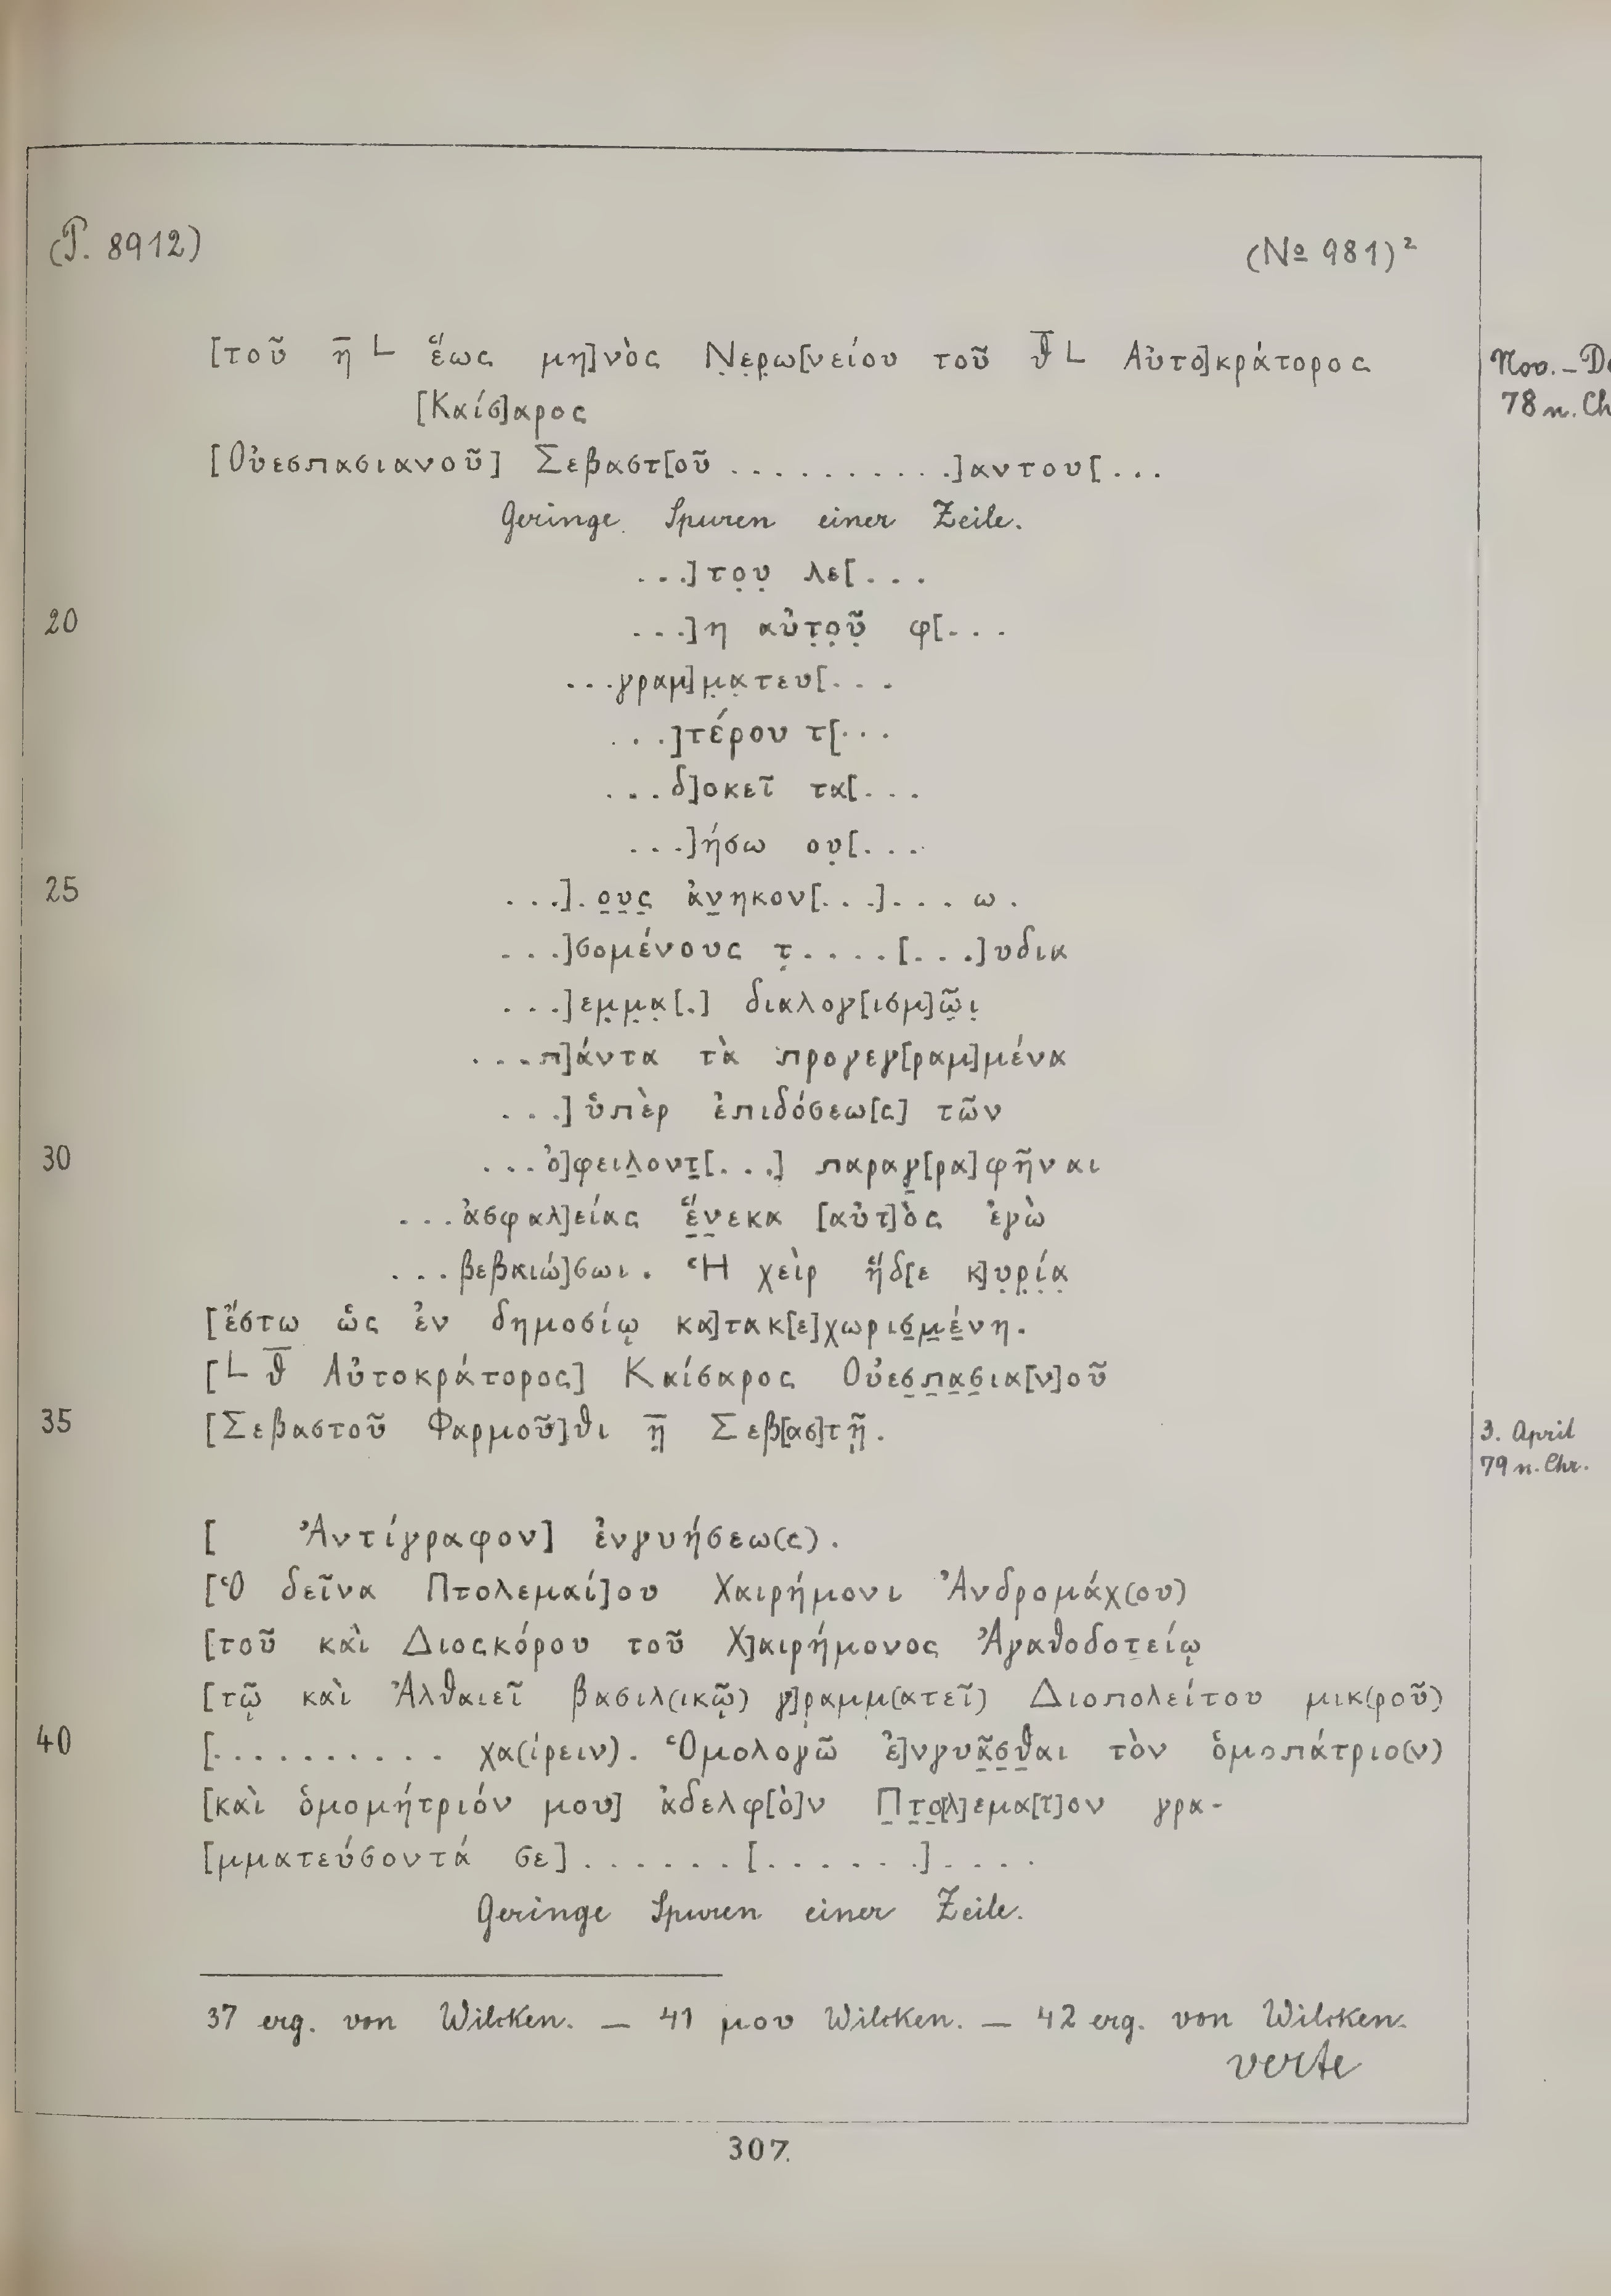 (P. 8912) (No 981)²
[τοῦ η̅ L ἕως μη]νὸς Ν̣ε̣ρ̣ω[νείου τοῦ θ̅ L Αὐτο]κράτορος
Nov. – De
[Καίσ]αρος
78 n. Ch
[Οὐεσπασιανοῦ] Σεβαστ[οῦ . . . . . . . . . .]αντου[ . . .
Geringe Spuren einer Zeile.
. . .]το̣υ̣ λε[ . . .
20 . . .]η αὐτ̣ο̣ῦ̣ φ[ . . .
. . . γραμ]μ̣α̣τευ[ . . .
. . .]τέρου τ[ . . .
. . . δ]οκεῖ τα[ . . .
. . .]ήσω ου̣[ . . .
25 . . .] . ο̣υ̣ς̣ ἀν̣ηκον[ . . .] . . . . ω .
. . .]σομένους τ̣ . . . . [ . . .]υδια
. . .]εμ̣μ̣α̣[.] διαλογ[ισμ]ῶ̣ι̣
. . . π]άντα τὰ προγεγ[ραμ]μένα
. . .] ὑπὲρ ἐπιδόσεω[ς] τῶν
30 . . . ὀ]φειλ̣οντ̣[ . . .] παραγ̣[ρα]φῆναι
. . . ἀσφαλ]είας ἕ̣ν̣εκα [αὐτ]ὸς ἐγὼ
. . . βεβαιώ]σωι. Ἡ χεὶρ ἥδ[ε κ]υ̣ρ̣ί̣α̣
[ἔστω ὡς ἐν δημοσίῳ κα]τακ[ε]χωρισ̣μ̣έ̣νη.
[L θ̅ Αὐτοκράτορος] Καίσαρος Οὐεσ̣π̣α̣σ̣ια[ν]οῦ
35 [Σεβαστοῦ Φαρμοῦ]θι η̣̅ Σεβ[ασ]τῇ̣.
3. April
79 n. Chr.
[ Ἀντίγραφον] ἐνγυήσεω(ς).
[Ὁ δεῖνα Πτολεμαί]ου Χαιρήμονι Ἀνδρομάχ(ου)
[τοῦ καὶ Διοςκόρου τοῦ Χ]αιρήμονος Ἀγαθοδοτ̣είῳ
[τῷ καὶ Ἀλθαιεῖ βασιλ(ικῷ) γ]ρ̣αμμ̣(ατεῖ) Διοπολείτου μικ(ροῦ)
40 [. . . . . . . . . . χα(ίρειν). Ὁμολογῶ ἐ]νγυᾶ̣σ̣θ̣αι τὸν ὁμοπάτριο(ν)
[καὶ ὁμομήτριόν μου] ἀδελφ[ὸ]ν Π̣τ̣ο̣[λ]εμα[ῖ]ον γρα-
[μματεύσοντά σε] . . . . . . [ . . . . . . .] . . . .
Geringe Spuren einer Zeile.
37 erg. von Wilcken. — 41 μου Wilcken. — 42 erg. von Wilcken.
verte
307.